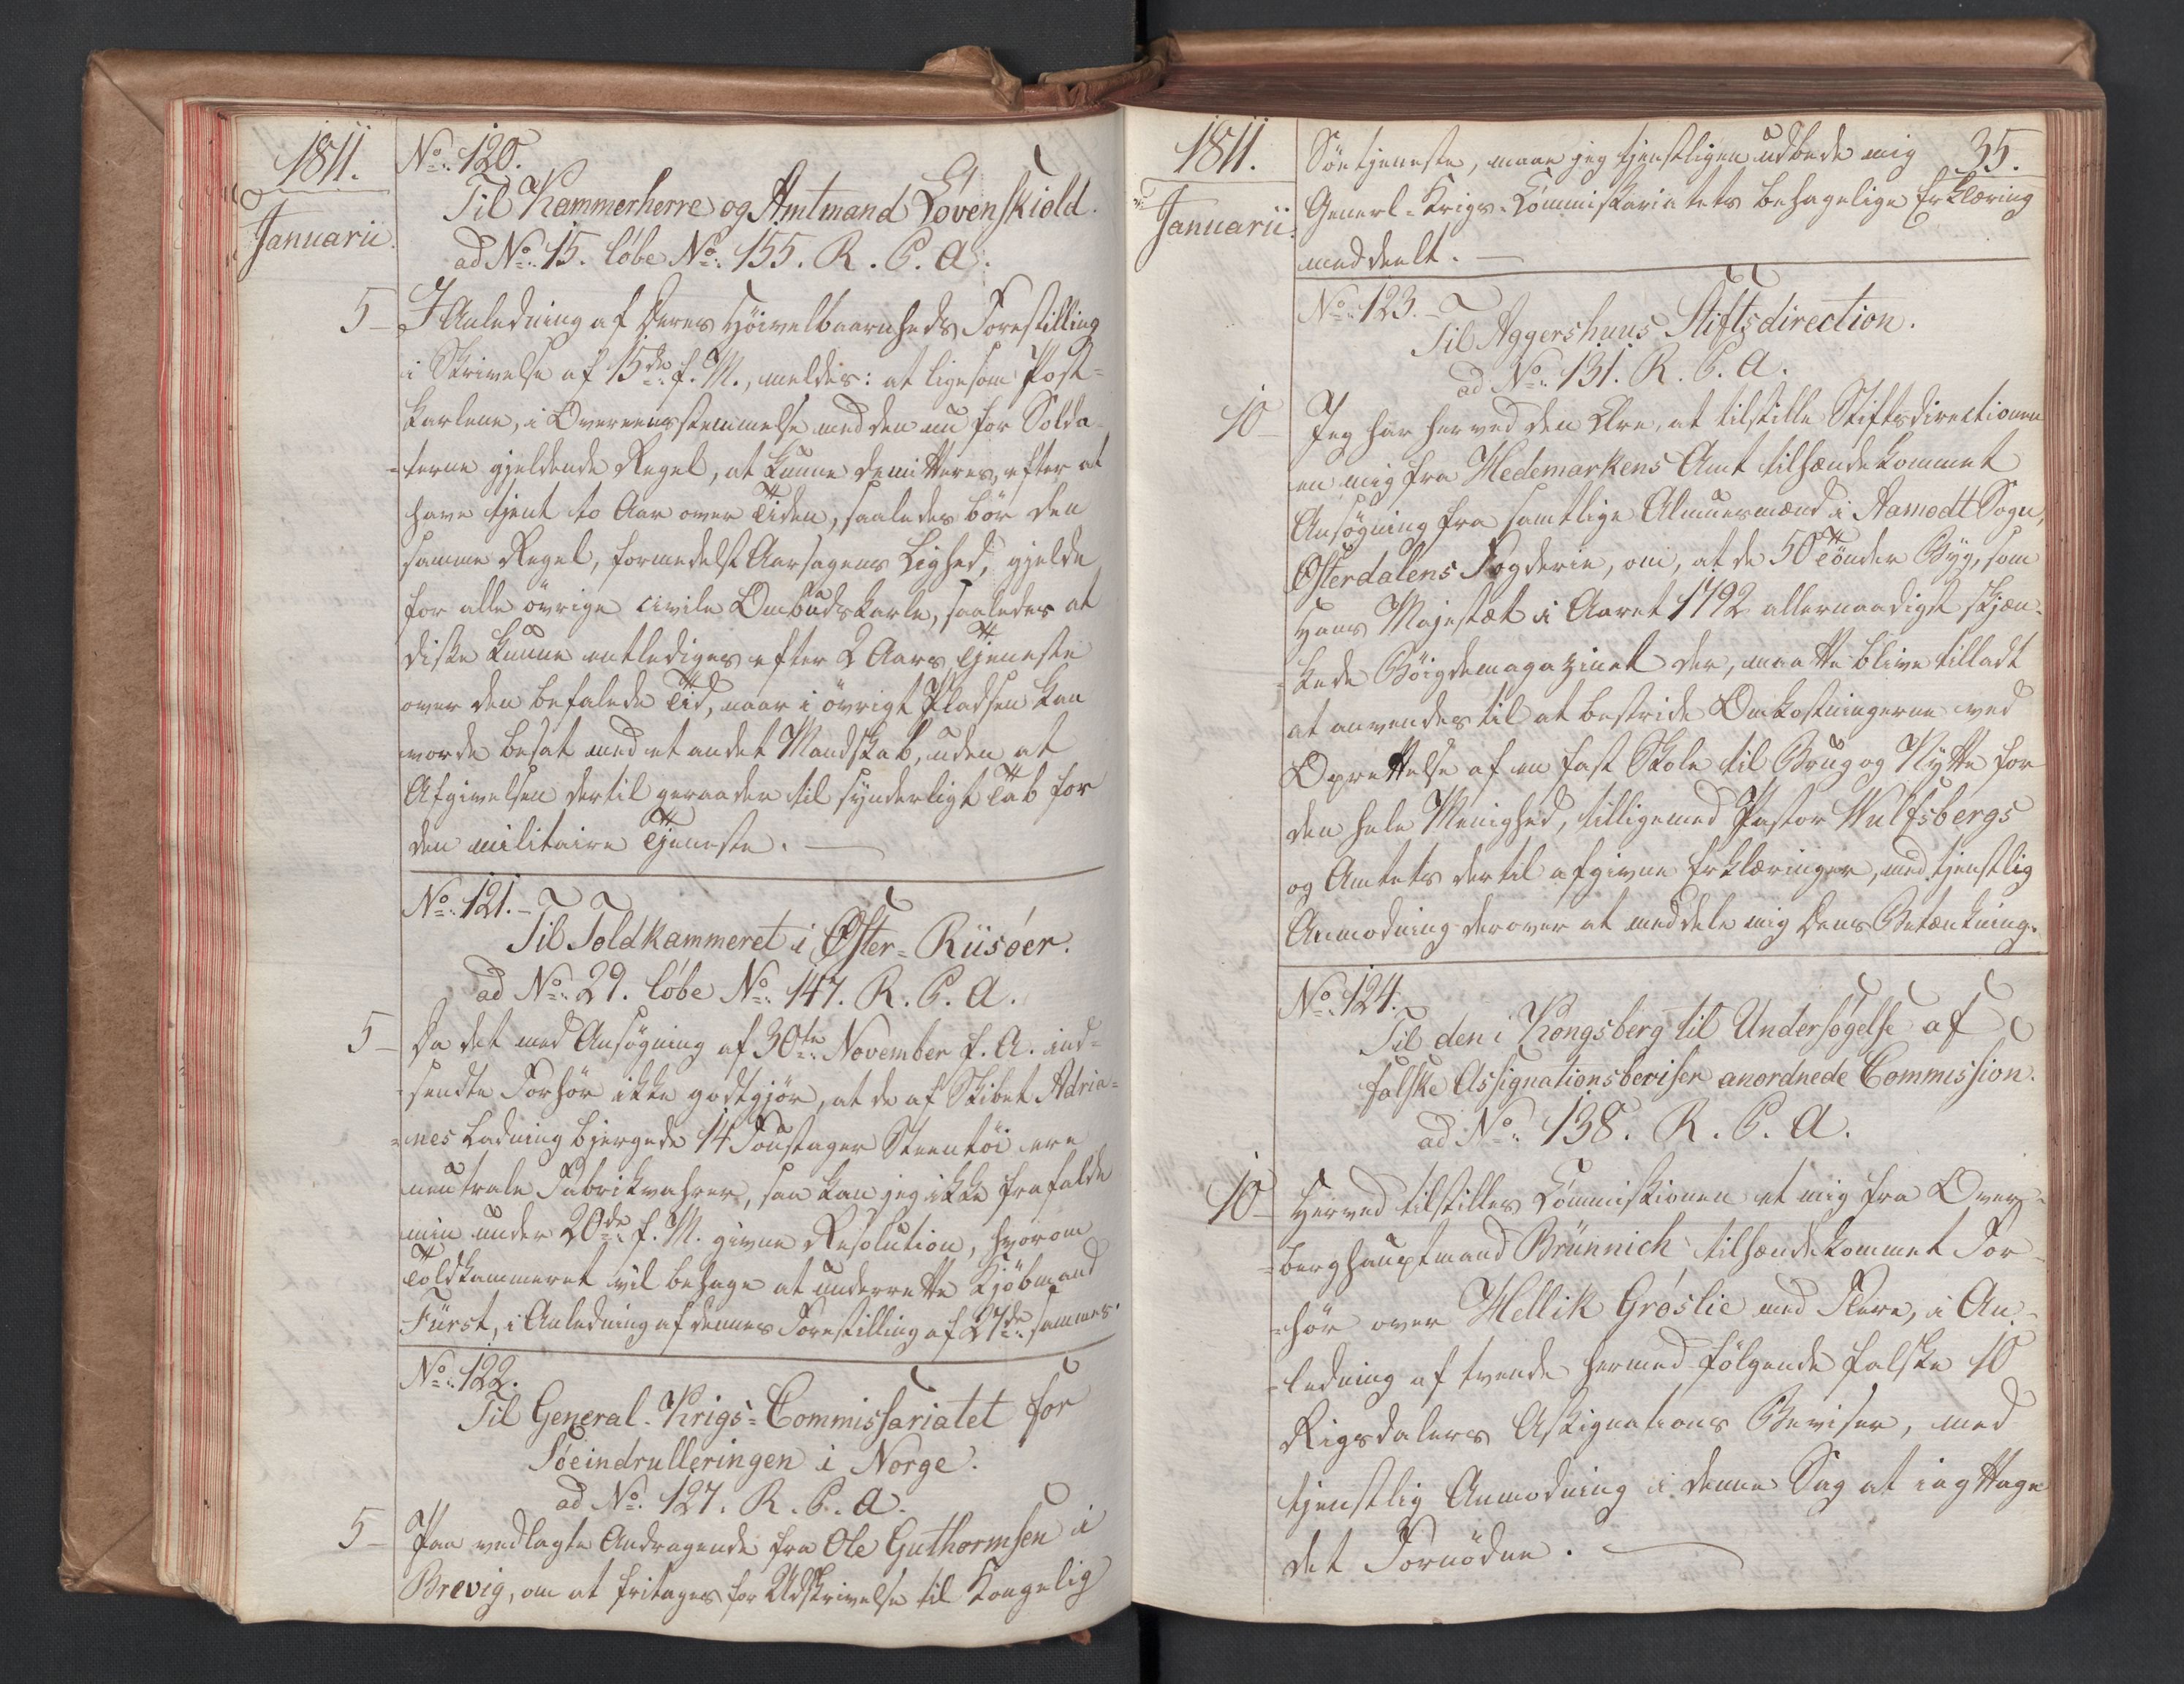 1811.
Januarii.
No. 120.
Til Kammerherre og Amtmand Løvenskiold.
ad No. 15. løbe No. 155. R. C. A.
5 – I Anledning af Deres Høivelbaarnheds Forestilling
i Skrivelse af 15de f. M., meldes: at ligesom Post-
karlene, i Overeensstemmelse med den nu for Solda-
-terne gjeldende Regel, at kunne demitteres, efter at
have tjent to Aar over Tiden, saaledes bör den
samme Regel, formedelst Aarsagens Lighed, gjelde
for alle övrige civile Ombudskarle, saaledes at
diske kunne entlediges efter 2 Aars Tjeneste
over den befalede Tid, naar i övrigt Pladsen kan
vorde besat med et andet Mandskab, uden at
Afgivelsen dertil geraader til synderligt Tab for
den militaire Tjeneste. —
No. 121. –
Til Toldkammeret i Øster-Riisøer.
ad No. 29. løbe No. 147. R. C. A.
5 – Da det med Ansøgning af 30te November f. A. ind-
-sendte Forhör ikke godtgjör, at de af Skibet Adria-
-nes Ladning bjergede 14 Toustager Steentöi ere
neutrale Fabrikvahrer, saa kan jeg ikke frafalde
min under 20de f. M. givne Resolution, hvorom
Toldkammeret vil behage at underrette Kjöbmand
Fürst, i Anledning af dennes Forestilling af 27de sammes.
No. 122.
Til General-Krigs-Commissariatet for
Søeindrulleringen i Norge.
ad No. 127. R. C. A.
5 – Paa vedlagte Andragende fra Ole Guthormsen i
Brevig, om at fritages for Udskrivelse til Kongelig
1811.
Januarii.
35.
Söetjeneste, maae jeg tjenstligen udbede mig
Generl-Krigs-Commissariatets behagelige Erklæring
meddeelt. —
No. 123. –
Til Aggershuus Stiftsdirection.
ad No. 131. R. C. A.
10 – Jeg har herved den Ære, at tilstille Stiftsdirectionen
en mig fra Hedemarkens Amt tilhændekommet
Ansøgning fra samtlige Almuesmænd i Aamodt Sogn,
Østerdalens Fogderie, om, at de 50 Tönder Byg, som
Hans Majestæt i Aaret 1792 allernaadigst skjæn-
-kede Böigdemagazinet der, maatte blive tilladt
at anvendes til at bestride Omkostningerne ved
Oprettelse af en fast Skole til Brug og Nytte for
den hele Menighed, tilligemed Pastor Wulfsbergs
og Amtets dertil afgivne Erklæringer, med tjenstlig
Anmodning derover at meddele mig Dens Betænkning.
No. 124.
Til den i Kongsberg til Undersøgelse af
falske Assignationsbeviser anordnede Commission.
ad No. 138. R. C. A.
10 – Herved tilstilles Commissionen et mig fra Over-
-berghauptmand Brünnich tilhændekommet For-
-hör over Hellik Grøslie med Flere, i An-
-ledning af tvende hermed fölgende falske 10
Rigsdalers Assignations Beviser, med
tjenstlig Anmodning i denne Sag at iagttage
det Fornödne. —